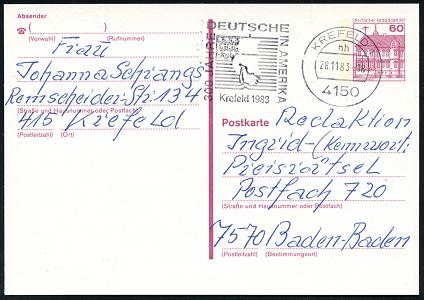 Absender
( )
(Vorwahl) (Rufnummer)
Frau
Johanna Schiangs
Remscheider-Str. 134
(Straße und Hausnummer oder Postfach)
415 Krefeld
(Postleitzahl) (Ort)
300 JAHRE DEUTSCHE IN AMERIKA
Krefeld 1983
KREFELD
nh
28.11.83
4150
DEUTSCHE BUNDESPOST
60
Postkarte
Redaktion
Ingrid-(Kennwort:
Preisrätsel
Postfach 720
(Straße und Hausnummer oder Postfach)
7570 Baden-Baden
(Postleitzahl) (Bestimmungsort)